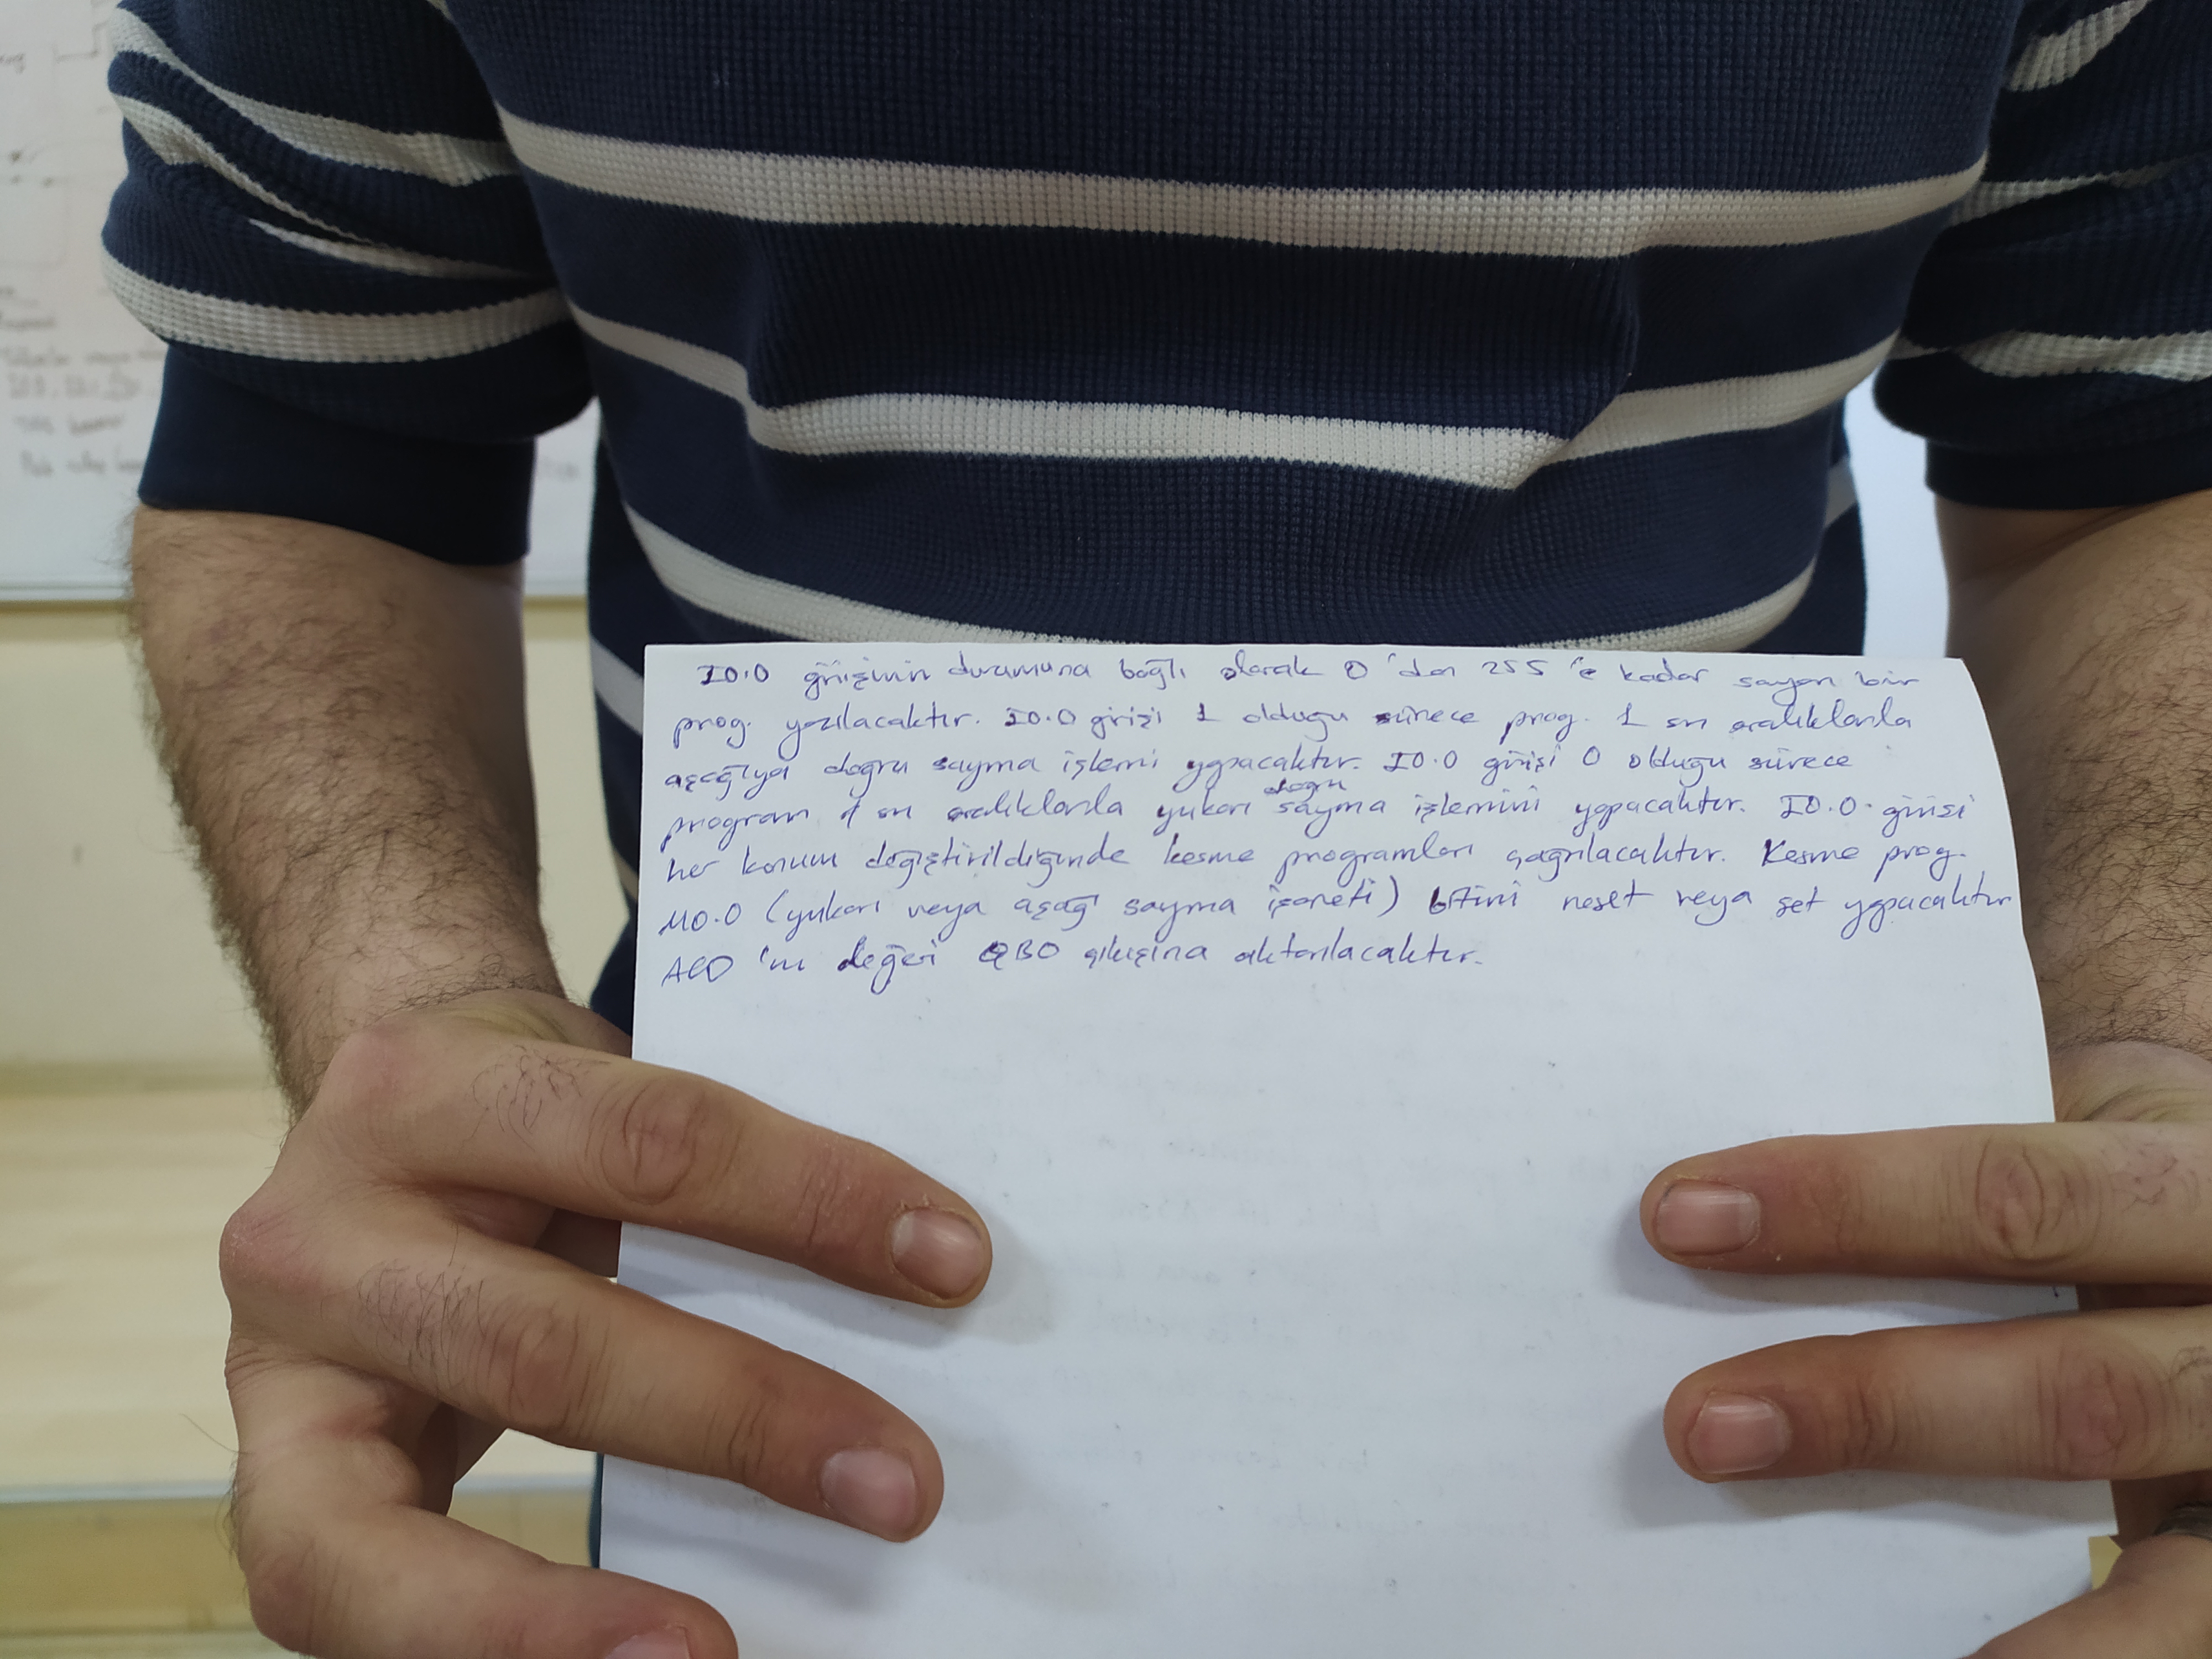 I0.0 girişinin durumuna bağlı olarak 0 'dan 255 'e kadar sayan bir
prog. yazılacaktır. I0.0 girişi 1 olduğu sürece prog. 1 sn aralıklarla
aşağıya doğru sayma işlemi yapacaktır. I0.0 girişi 0 olduğu sürece
program 1 sn aralıklarla yukarı doğru sayma işlemini yapacaktır. I0.0 girişi
her konum değiştirildiğinde kesme programları çağrılacaktır. Kesme prog.
M0.0 (yukarı veya aşağı sayma işareti) bitini reset veya set yapacaktır
AC0 'ın değeri QB0 çıkışına aktarılacaktır.